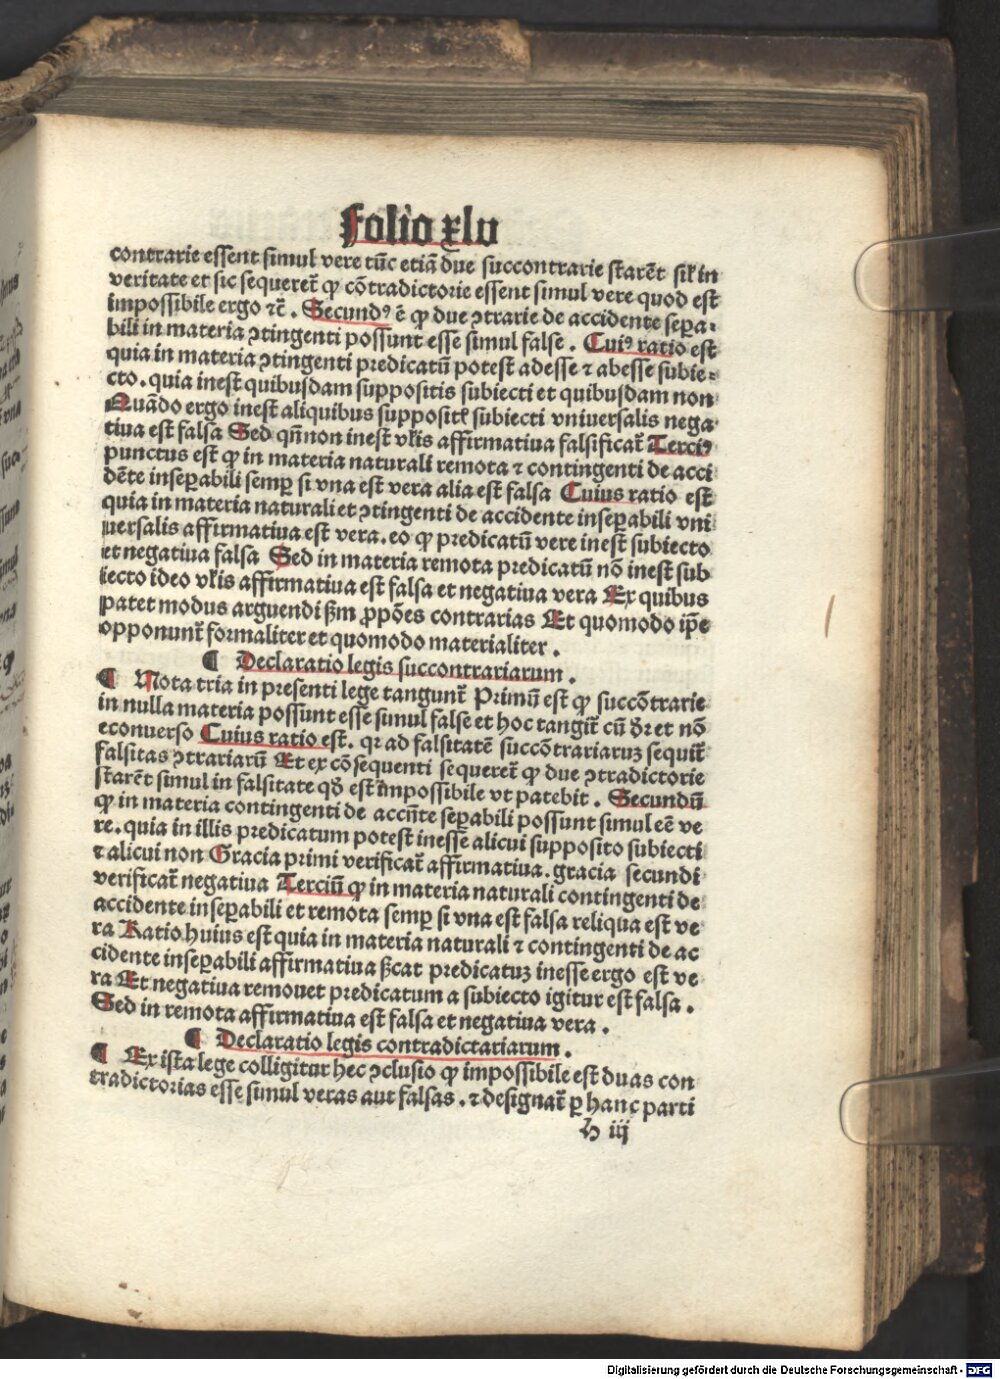 Folio xlv
contrarie essent simul vere tūc etiā due succontrarie starēt sil̄ in
veritate et sic sequeret̄ ꝙ cōtradictorie essent simul vere quod est
impossibile ergo ⁊c̄. Secundꝰ ē ꝙ due ↄtrarie de accidente seꝑa⸗
bili in materia ↄtingenti possunt esse simul false. Cuiꝰ ratio est
quia in materia ↄtingenti predicatū potest adesse ⁊ abesse subie⸗
cto. quia inest quibusdam suppositis subiecti et quibusdam non
Quādo ergo inest aliquibus suppositꝭ subiecti vniuersalis nega
tiua est falsa Sed qn̄ non inest vl̄is affirmatiua falsificat̄ Terciꝰ
punctus est ꝙ in materia naturali remota ⁊ contingenti de acci
dēte inseꝑabili semꝑ si vna est vera alia est falsa Cuius ratio est
quia in materia naturali et ↄtingenti de accidente inseꝑabili vni
uersalis affirmatiua est vera. eo ꝙ predicatū vere inest subiecto
et negatiua falsa Sed in materia remota predicatū nō inest sub
iecto ideo vl̄is affirmatiua est falsa et negatiua vera Ex quibus
patet modus arguendi ẜm ꝓpōes contrarias Et quomodo ip̄e
opponunt̄ formaliter et quomodo materialiter.
¶ Declaratio legis succontrariarum.
¶ Nota tria in presenti lege tangunt̄ Primū est ꝙ succōtrarie
in nulla materia possunt esse simul false et hoc tangit̄ cū dr̄ et nō
econuerso Cuius ratio est. qꝛ ad falsitatē succōtrariaruꝫ sequit̄
falsitas ↄtrariarū Et ex cōsequenti sequeret̄ ꝙ due ↄtradictorie
starēt simul in falsitate qd̄ est impossibile vt patebit. Secundū
ꝙ in materia contingenti de accn̄te seꝑabili possunt simul eē ve
re. quia in illis predicatum potest inesse alicui supposito subiecti
⁊ alicui non Gracia primi verificat̄ affirmatiua. gracia secundi
verificat̄ negatiua Terciū ꝙ in materia naturali contingenti de
accidente inseꝑabili et remota semꝑ si vna est falsa reliqua est ve
ra Ratio huius est quia in materia naturali ⁊ contingenti de ac
cidente inseꝑabili affirmatiua ẜcat predicatuꝫ inesse ergo est ve
ra Et negatiua remouet predicatum a subiecto igitur est falsa.
Sed in remota affirmatiua est falsa et negatiua vera.
¶ Declaratio legis contradictariarum.
¶ Ex ista lege colligitur hec ↄclusio ꝙ impossibile est duas con
tradictorias esse simul veras aut falsas. ⁊ designat̄ ꝑ hanc parti
h iij
Digitalisierung gefördert durch die Deutsche Forschungsgemeinschaft - DFG